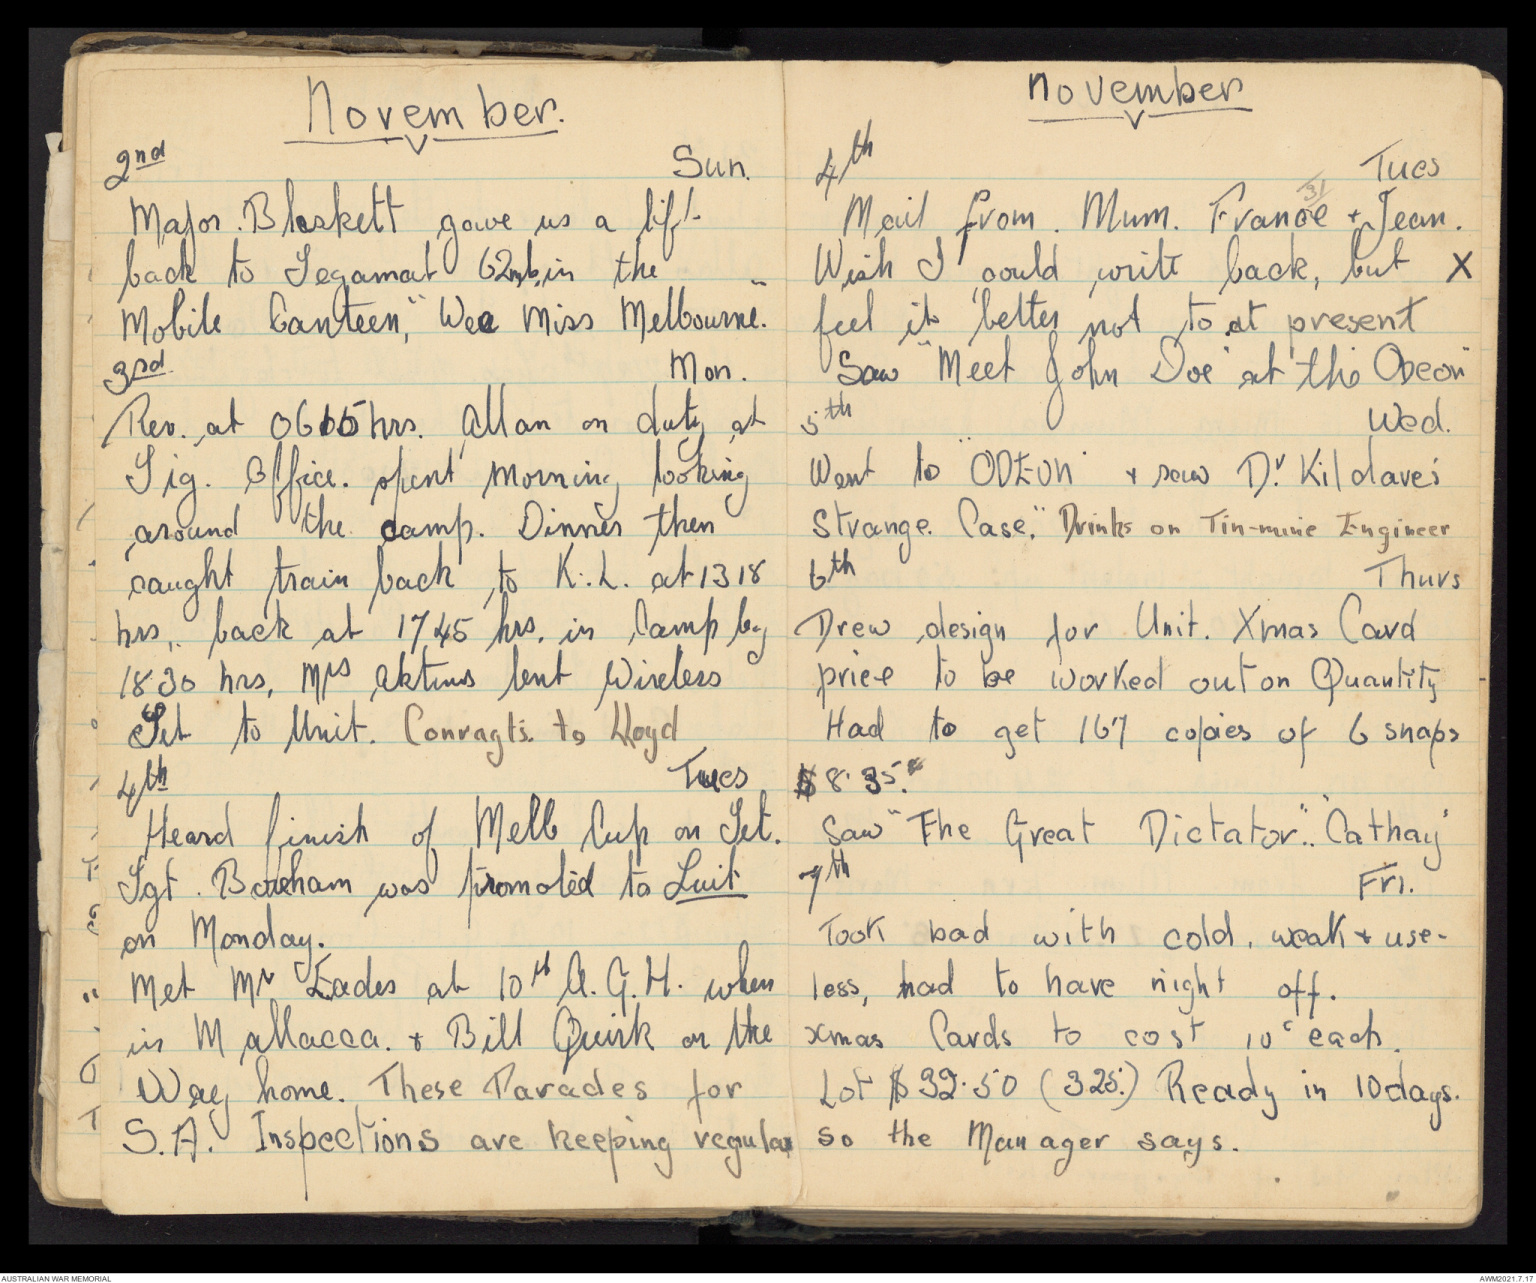 November.
2nd Sun.
Major. Blaskett gave us a lift
back to Segamat 62mls, in the
Mobile Canteen, "Wee Miss Melbourne."
3rd Mon.
Rev. at 0615 hrs. Allan on duty at
Sig. Office. spent morning looking
around the camp. Dinner then
caught train back to K.L. at 1318
hrs, back at 1745 hrs, in Camp by
1830 hrs, Mrs lent Wireless
Set to Unit. Conragts. to Lloyd
4th Tues
Heard finish of Melb Cup on Set.
Sgt. Boreham was promoted to Luit
on Monday.
Met Mr Eades at 10th A.G.H. when
in Mallacca. + Bill Quirk on the
Way home. These Parades for
S.A. Inspections are keeping regular
November
4th Tues
31
Mail from. Mum. France + Jean.
Wish I could write back, but X
feel its better not to at present
Saw "Meet John Doe" at this Odeon"
5th Wed.
Went to "ODEON" + saw Dr. Kildave's
Strange. Case." Drinks on Tin-mine Engineer
6th Thurs
Drew design for Unit. Xmas Card
price to be worked out on Quantity
Had to get 167 copies of 6 snaps
$8.35.
Saw "The Great Dictator".. 'Cathay'
7th Fri.
Took bad with cold, weak + use-
less, had to have night off.
Xmas Cards to cost 10c each.
Lot $32.50 (325.) Ready in 10 days.
so the Manager says.
AUSTRALIAN WAR MEMORIAL
AWM2021.7.17